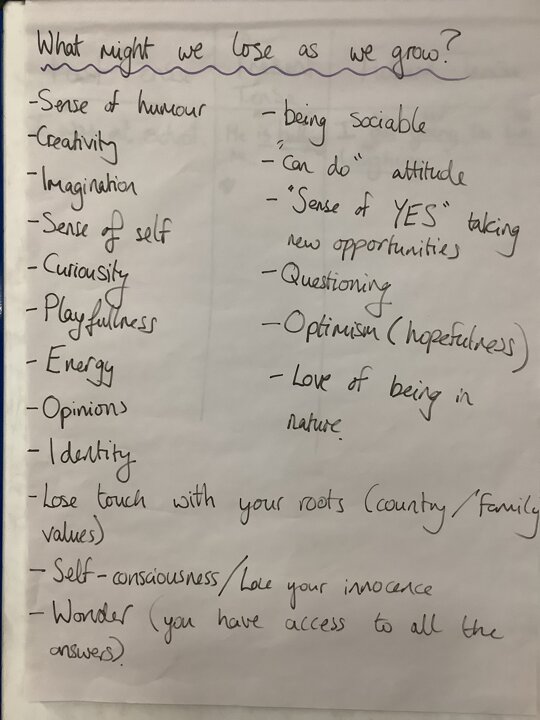 What might we lose as we grow?
-Sense of humour
-Creativity
-Imagination
-Sense of self
-Curiousity
-Playfullness
-Energy
-Opinions
-Identity
-Lose touch with your roots (country/family
values)
-Self-consciousness/Lose your innocence
-Wonder (you have access to all the
answers)
-being sociable
-"can do" attitude
-"Sense of YES" taking
new opportunities
-Questioning
-Optimism (hopefulness)
-Love of being in
nature.